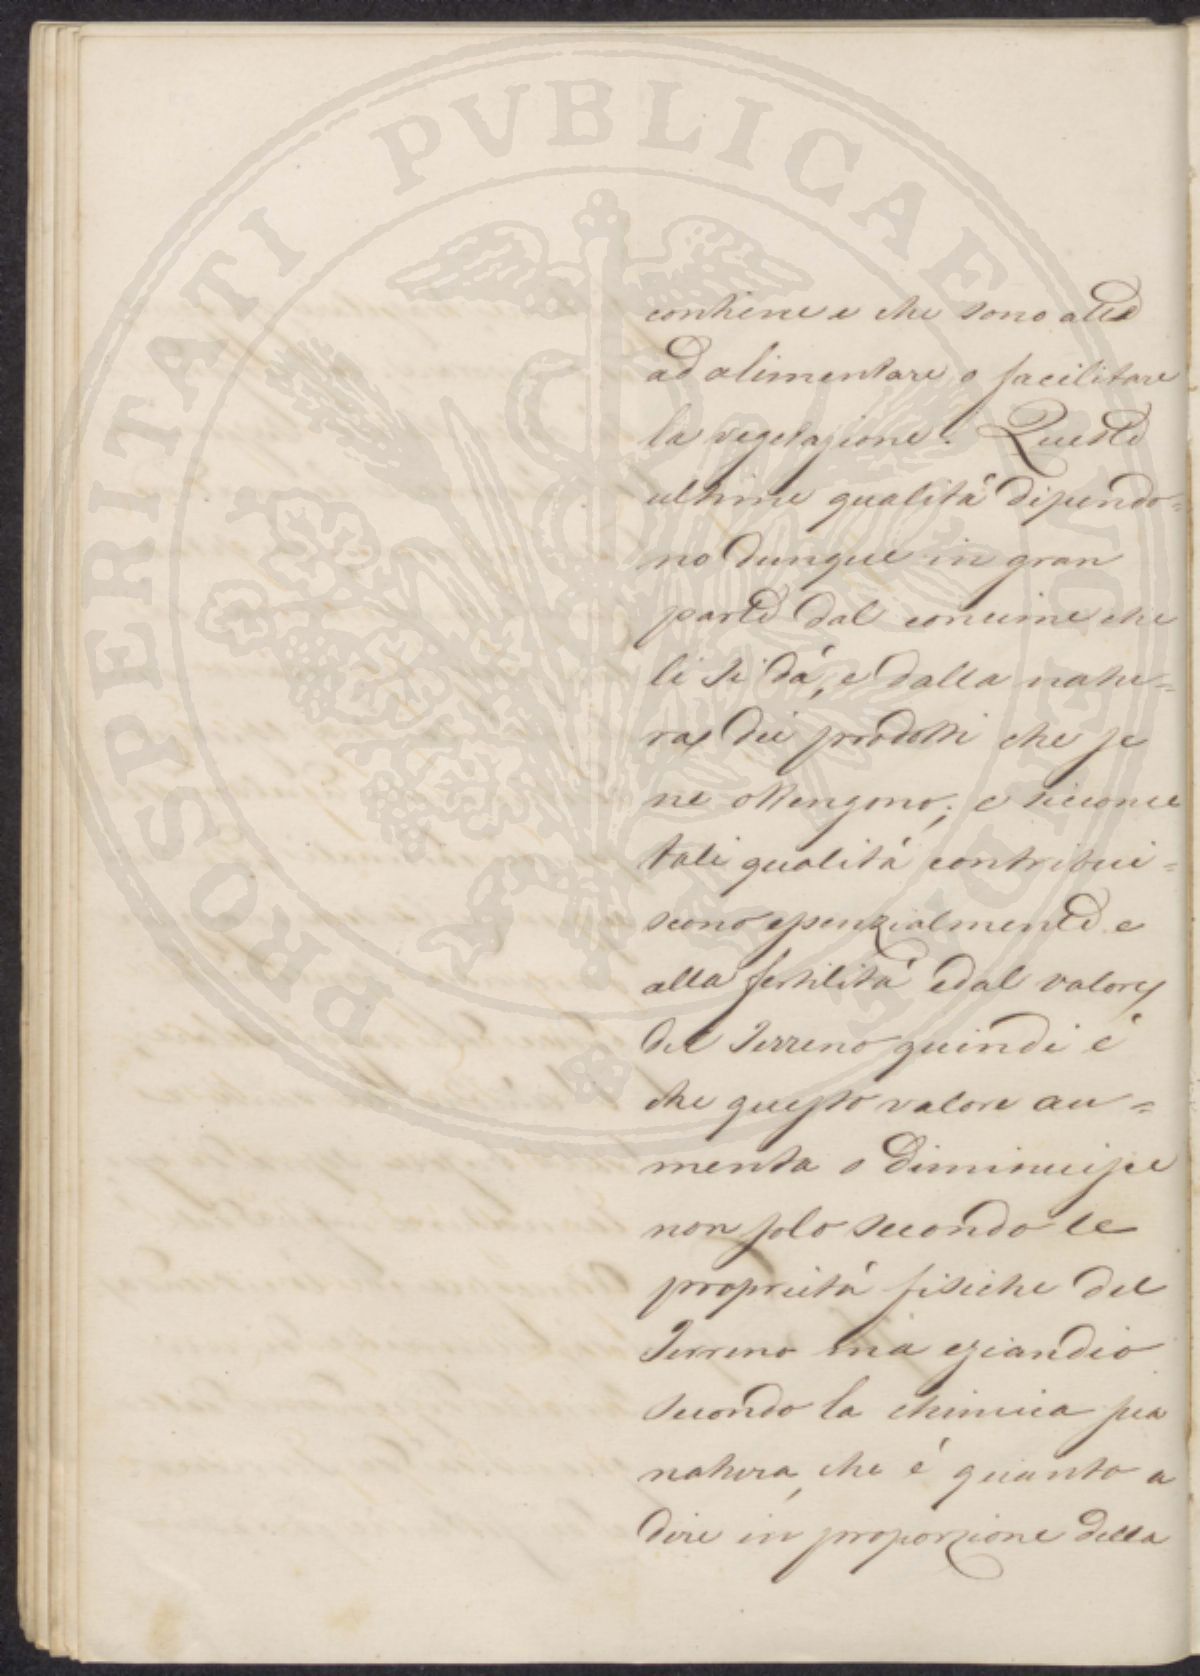 contiene e che sono atte
ad alimentare o facilitare
la vegetazione. Queste
ultime qualità dipendo=
no dunque in gran
parte dal concime che
li si dá, e dalla natu=
ra dei prodotti che se
ne ottengono; e siccome
tali qualità contribui=
scono essenzialmente e
alla fertilità ed al valore
del Terreno quindi é
che questo valore au=
menta o diminuisce
non solo secondo le
proprietà fisiche del
Terreno ma eziandio
secondo la chimica sua
natura, che é quanto a
dire in proporzione della
PROSPERITATI PVBLICAE